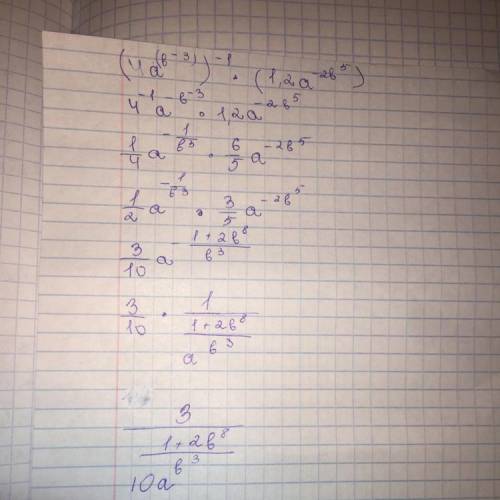 (4a^(b^-3))^-1 · (1,2a^-2b^5)
4^-1 a^-b^-3 · 1,2a^-2b^5
1/4 a^-1/b^3 · 6/5 a^-2b^5
1/2 a^-1/b^3 · 3/5 a^-2b^5
3/10 a^-(1+2b^8)/b^3
3/10 · 1/a^((1+2b^8)/b^3)
3/10a^((1+2b^8)/b^3)